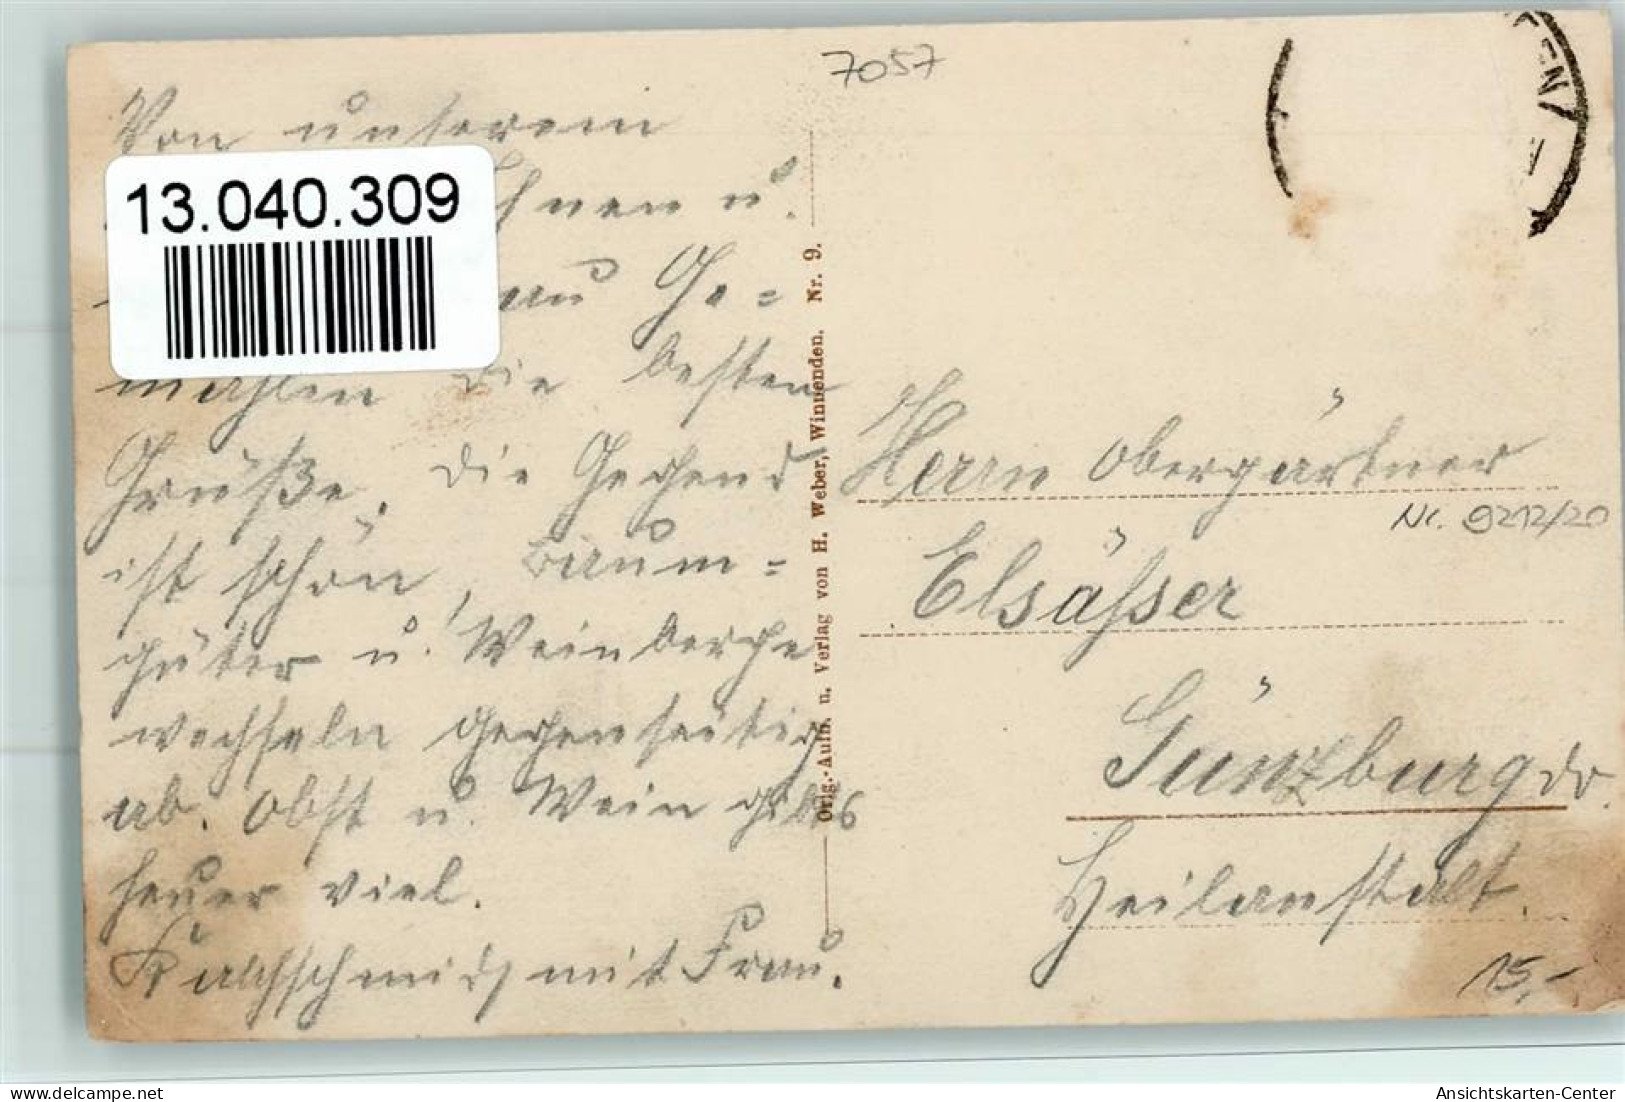 7057
Von unserem
13.040.309
Ihnen u.
Frau Ge=
mahlin die besten
Grüße. Die Gegend
ist schön, Baum=
güter u. Weinberge
wechseln gegenseitig
ab. Obst u. Wein gibts
heuer viel.
mit Frau.
Orig.-Aufn. u. Verlag von H. Weber, Winnenden. Nr. 9.
Herrn Obergärtner
Nr. 9212/20
Elsäßer
Günzburg a/D.
Heilanstalt.
15,-
Ansichtskarten-Center
www.delcampe.net